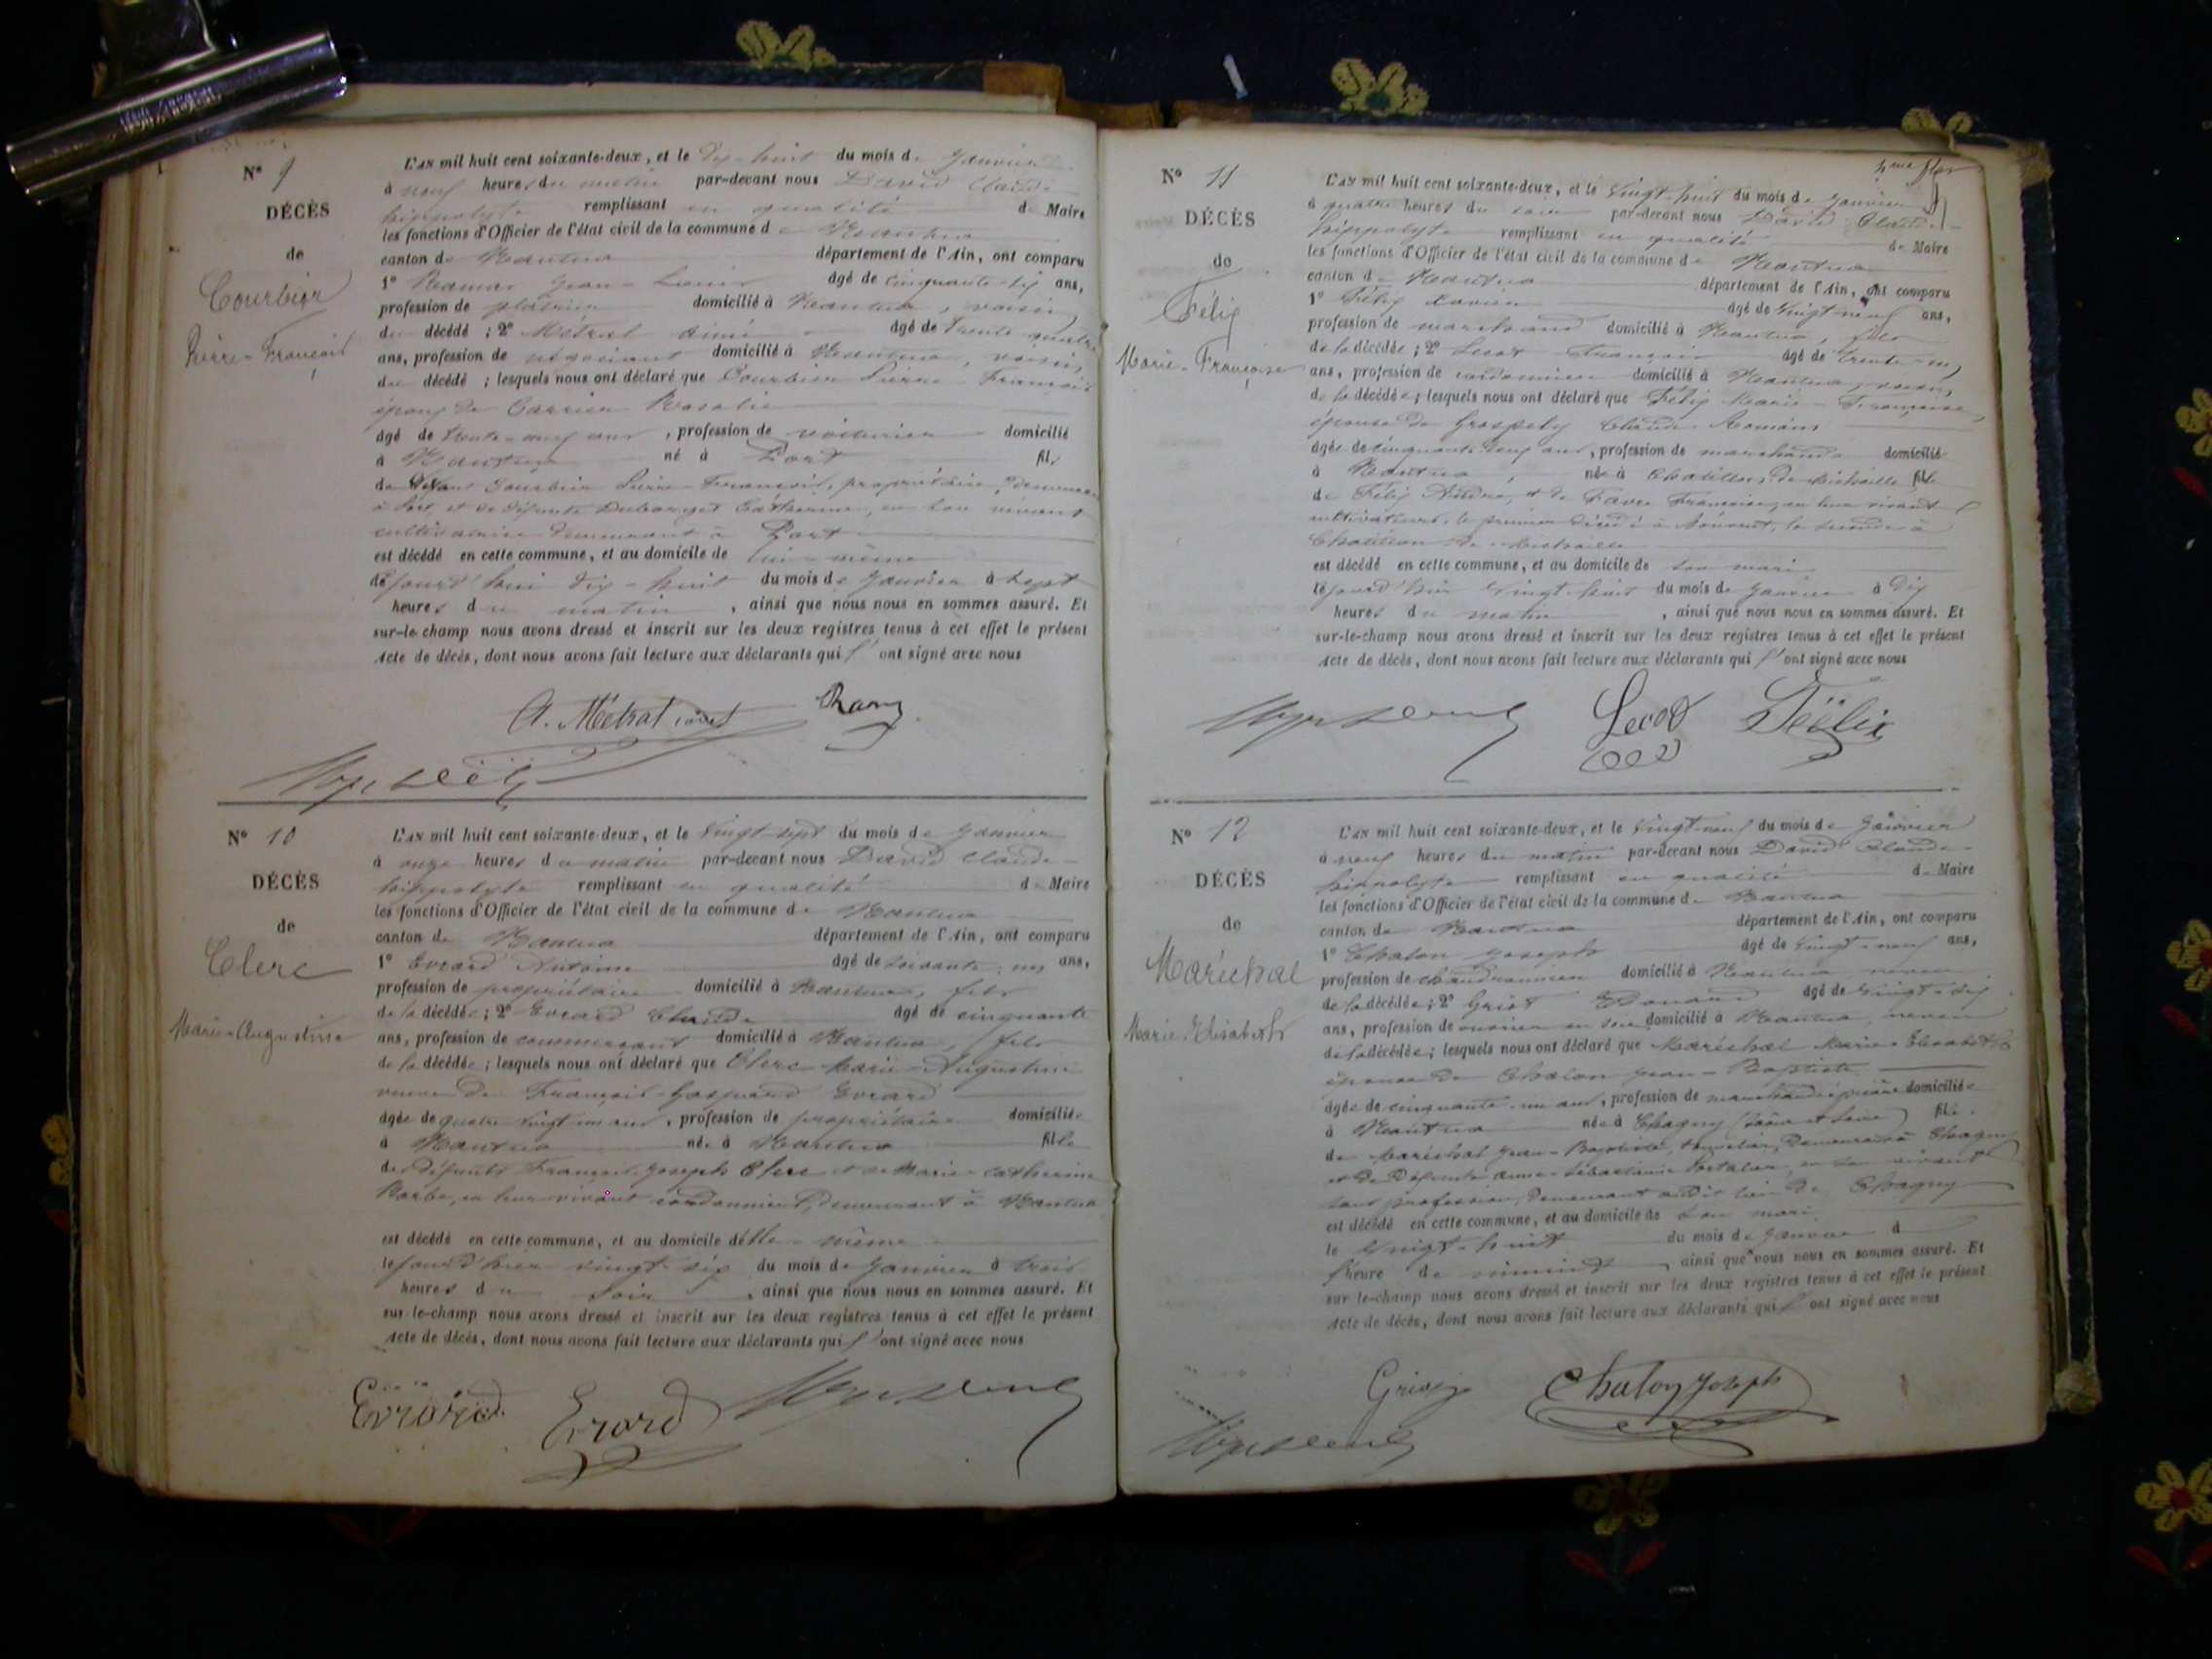 N° 9
DÉCÈS
de
Courbier
Pierre-François
L'AN mil huit cent soixante-deux, et le dix-huit du mois de Janvier
à neuf heures du matin par-devant nous David Claude-
hippolyte remplissant en qualité de Maire
les fonctions d'Officier de l'état civil de la commune de Nantua
canton de Nantua département de l'Ain, ont comparu
1° Jean-Louis âgé de cinquante-six ans,
profession de plâtrier domicilié à Nantua, voisin,
du décédé ; 2° Métral Aimé âgé de trente-quatre
ans, profession de négociant domicilié à Nantua, voisin,
du décédé ; lesquels nous ont déclaré que Courbier Pierre-François
époux de Carrier Rosalie
âgé de trente-neuf ans, profession de voiturier domicilié
à Nantua né à Port fils
de Courbier Pierre-François, propriétaire,
à Port, et de défunte Catherine, en son vivant
cultivatrice demeurant à Port
est décédé en cette commune, et au domicile de lui-même
cejourd'hui dix-huit du mois de Janvier à sept
heures du matin, ainsi que nous nous en sommes assuré. Et
sur-le-champ nous avons dressé et inscrit sur les deux registres tenus à cet effet le présent
Acte de décès, dont nous avons fait lecture aux déclarants qui l'ont signé avec nous
A. Métral
N° 10
DÉCÈS
de
Clerc
Marie-Augustine
L'AN mil huit cent soixante-deux, et le vingt-sept du mois de Janvier
à onze heures du matin par-devant nous David Claude-
hippolyte remplissant en qualité de Maire
les fonctions d'Officier de l'état civil de la commune de Nantua
canton de Nantua département de l'Ain, ont comparu
1° Evrard Antoine âgé de soixante-un ans,
profession de propriétaire domicilié à Nantua, fils
de la décédée ; 2° Evrard Claude âgé de cinquante
ans, profession de commerçant domicilié à Nantua, fils
de la décédée ; lesquels nous ont déclaré que Clerc Marie-Augustine
veuve de François-Gaspard Evrard
âgée de quatre vingt un ans, profession de propriétaire domiciliée
à Nantua née à Nantua fille
de défunts François-Joseph Clerc et de Marie-Catherine
Barbe, en leur vivant cordonnier, demeurant à Nantua
est décédé en cette commune, et au domicile d'elle-même
le jour d'hier vingt-six du mois de Janvier à trois
heures du soir, ainsi que nous nous en sommes assuré. Et
sur-le-champ nous avons dressé et inscrit sur les deux registres tenus à cet effet le présent
Acte de décès, dont nous avons fait lecture aux déclarants qui l'ont signé avec nous
Evrard Evrard
N° 11
DÉCÈS
de
Félix
Marie-Française
L'AN mil huit cent soixante-deux, et le vingt-huit du mois de Janvier
à quatre heures du soir par-devant nous David Claude-
hippolyte remplissant en qualité de Maire
les fonctions d'Officier de l'état civil de la commune de Nantua
canton de Nantua département de l'Ain, ont comparu
1° Félix Xavier âgé de vingt-neuf ans,
profession de marchand domicilié à Nantua,
de la décédée ; 2° Lecot François âgé de trente-un
ans, profession de cordonnier domicilié à Nantua, voisin,
de la décédée ; lesquels nous ont déclaré que Félix Marie-Française,
épouse de Grospely Claude-Romain
âgée de cinquante ans, profession de marchande domiciliée
à Nantua, née à Chatillon-de-Michaille fille
de Félix André, et de Favre Françoise, en leur vivant
cultivateurs, le premier décédé à, la seconde à
Chatillon-de-Michaille
est décédé en cette commune, et au domicile de son mari
cejourd'hui vingt-huit du mois de Janvier à dix
heures du matin, ainsi que nous nous en sommes assuré. Et
sur-le-champ nous avons dressé et inscrit sur les deux registres tenus à cet effet le présent
Acte de décès, dont nous avons fait lecture aux déclarants qui l'ont signé avec nous
Lecot Féélix
N° 12
DÉCÈS
de
Maréchal
Marie-Elisabeth
L'AN mil huit cent soixante-deux, et le vingt-neuf du mois de Janvier
à neuf heures du matin par-devant nous David Claude-
hippolyte remplissant en qualité de Maire
les fonctions d'Officier de l'état civil de la commune de Nantua
canton de Nantua département de l'Ain, ont comparu
1° Chalon Joseph âgé de vingt-neuf ans,
profession de chaudronnier domicilié à Nantua, neveu
de la décédée ; 2° Griot Edouard âgé de vingt-six
ans, profession de ouvrier en domicilié à Nantua, neveu
de la décédée ; lesquels nous ont déclaré que Maréchal Marie-Elisabeth
épouse de Chalon Jean-Baptiste
âgée de cinquante-un ans, profession de marchande domiciliée
à Nantua née à Chagny (Saône et Loire) fille
de Maréchal Jean-Baptiste, tonnelier, demeurant à Chagny
et de défunte Anne-Sébastienne, en son vivant
sans profession, demeurant audit lieu de Chagny
est décédé en cette commune, et au domicile de son mari
le vingt-huit du mois de Janvier à
l'heure de minuit, ainsi que nous nous en sommes assuré. Et
sur-le-champ nous avons dressé et inscrit sur les deux registres tenus à cet effet le présent
Acte de décès, dont nous avons fait lecture aux déclarants qui l'ont signé avec nous
Chalon Joseph